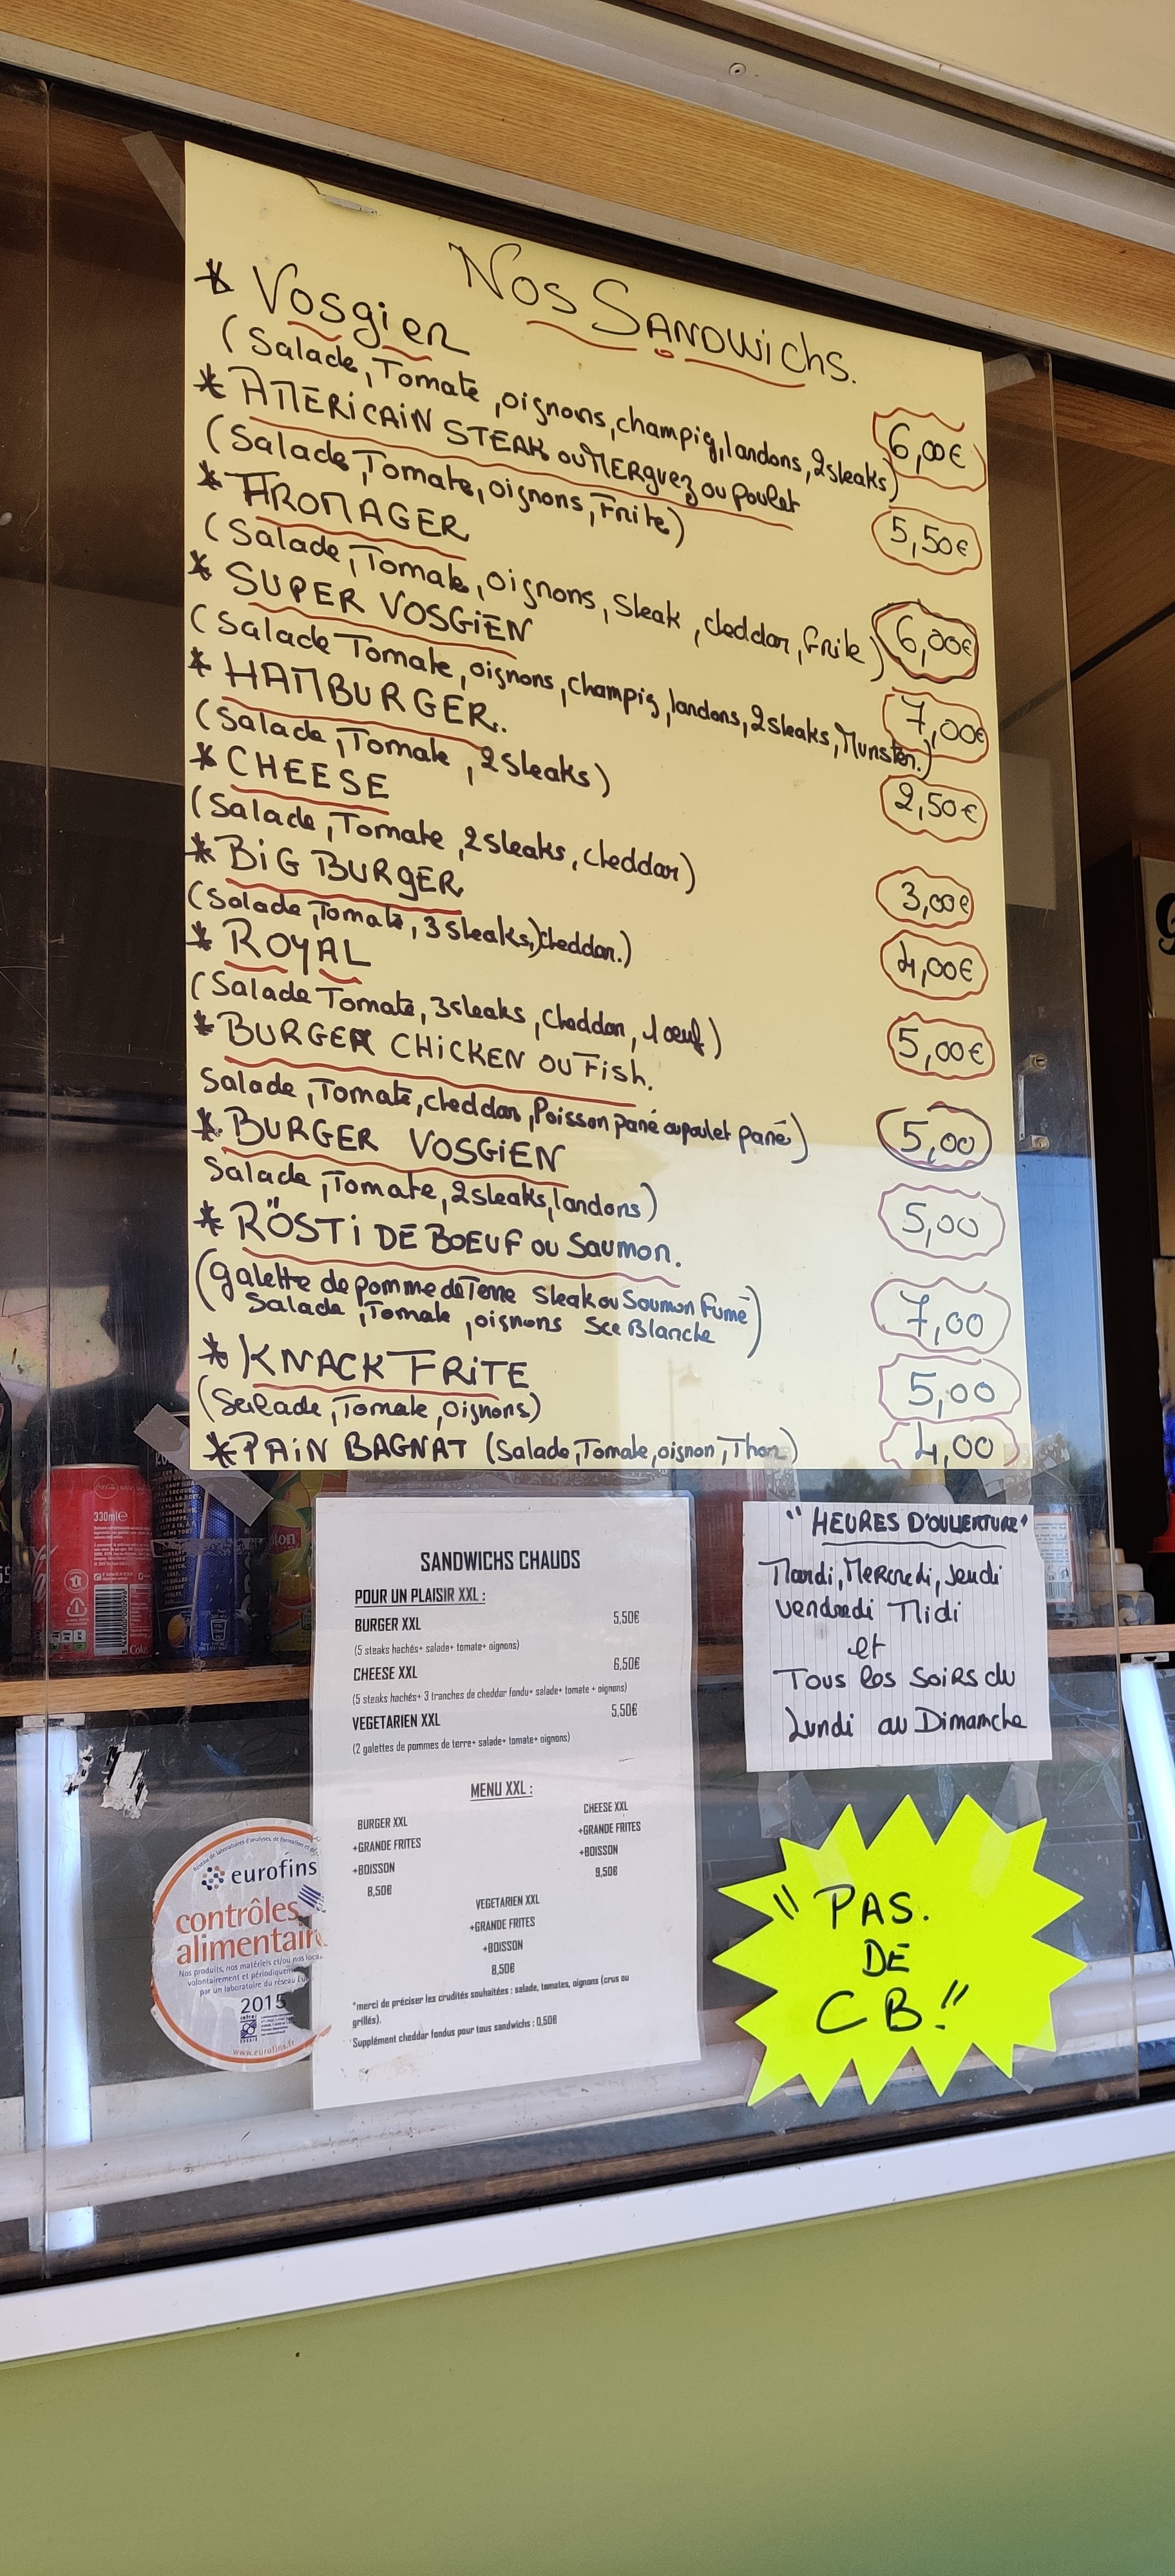 Nos SANDWichs.
* Vosgien
(Salade, Tomate, oignons, champig, lardons, 2 steaks) 6,00€
* AMERiCAiN STEAK ou MERguez ou poulet
(Salade, Tomate, oignons, Frite) 5,50€
* FROMAGER
(Salade, Tomate, oignons, Steak, cheddar, Frite) 6,00€
* SUPER VOSGiEN
(Salade Tomate, oignons, champig, lardons, 2 steaks, Munster.) 7,00€
* HAMBURGER.
(Salade, Tomate, 2 Steaks) 2,50€
* CHEESE
(Salade, Tomate, 2 Steaks, cheddar) 3,00€
* BiG BURgER
(Salade, Tomate, 3 Steaks, cheddar.) 4,00€
* ROYAL
(Salade Tomate, 3 steaks, Cheddar, 1 oeuf) 5,00€
* BURGER CHiCKEN ou Fish.
Salade, Tomate, cheddar, Poisson pané ou poulet pané) 5,00
* BURGER VOSGiEN
Salade, Tomate, 2 steaks, lardons) 5,00
* RÖSTi DE BOEUF ou Saumon.
(galette de pomme de Terre Steak ou Soumon Fumé
Salade, Tomate, oignons Sce Blanche) 7,00
* KNACK FRiTE
(Salade, Tomate, Oignons) 5,00
* PAiN BAGNAT (Salade, Tomate, oignon, Thon) 4,00
330ml e
Coke
SANDWICHS CHAUDS
POUR UN PLAISIR XXL :
BURGER XXL 5,50€
(5 steaks hachés+ salade+ tomate+ oignons)
CHEESE XXL 6,50€
(5 steaks hachés+ 3 tranches de cheddar fondu+ salade+ tomate + oignons)
VEGETARIEN XXL 5,50€
(2 galettes de pommes de terre+ salade+ tomate+ oignons)
MENU XXL :
BURGER XXL
+GRANDE FRITES
+BOISSON
8,50€
CHEESE XXL
+GRANDE FRITES
+BOISSON
9,50€
VEGETARIEN XXL
+GRANDE FRITES
+BOISSON
8,50€
*merci de préciser les crudités souhaitées : salade, tomates, oignons (crus ou
grillés).
Supplément cheddar fondus pour tous sandwichs : 0,50€
"HEURES D'OUVERTURE"
Mardi, Mercredi, Jeudi
vendredi Midi
et
Tous les soirs du
Lundi au Dimanche
eurofins
contrôles
alimentair
Nos produits, nos matériels et/ou nos loca
volontairement et périodiquem
par un laboratoire du réseau Eu
2015
www.eurofins.fr
"PAS.
DE
CB!"